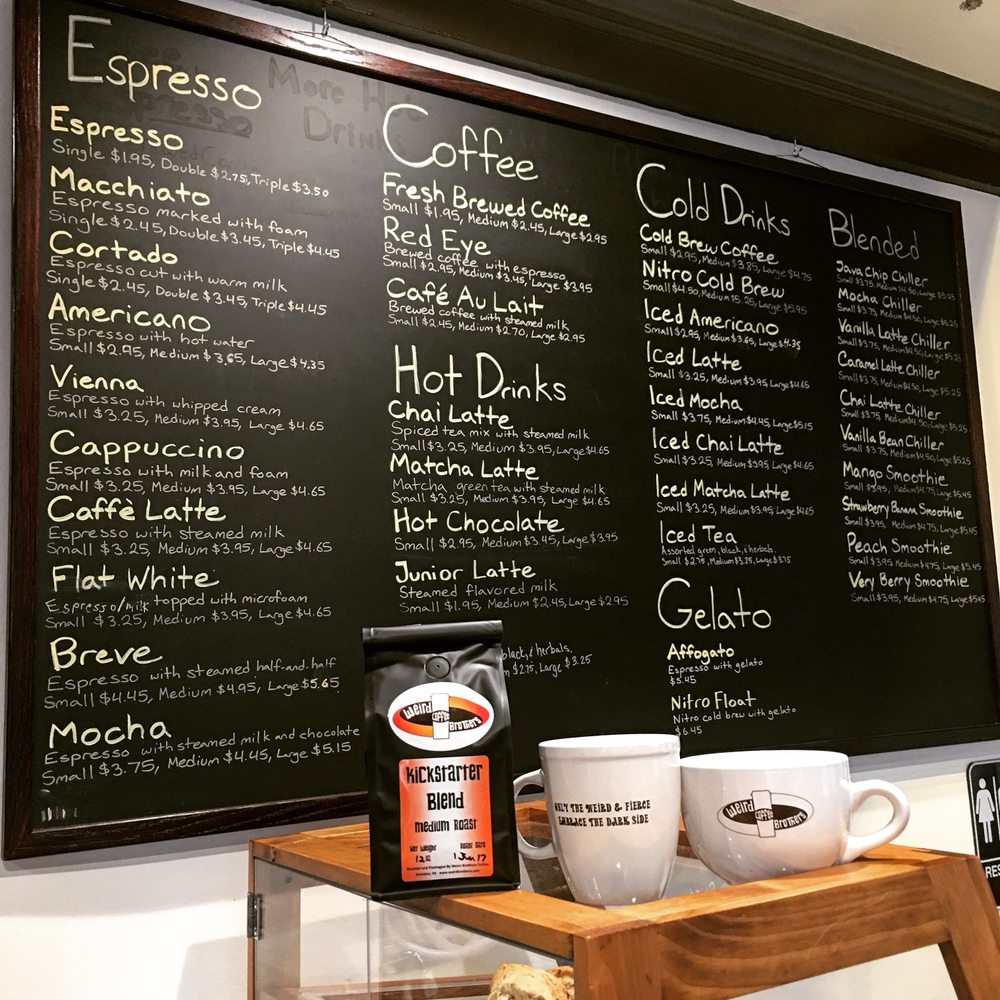 Espresso
Espresso
Single $1.95, Double $2.75, Triple $3.50
Macchiato
Espresso marked with foam
Single $2.45, Double $3.45, Triple $4.45
Cortado
Espresso cut with warm milk
Single $2.45, Double $3.45, Triple $4.45
Americano
Espresso with hot water
Small $2.95, Medium $3.65, Large $4.35
Vienna
Espresso with whipped cream
Small $3.25, Medium $3.95, Large $4.65
Cappuccino
Espresso with milk and foam
Small $3.25, Medium $3.95, Large $4.65
Caffè Latte
Espresso with steamed milk
Small $3.25, Medium $3.95, Large $4.65
Flat White
Espresso/milk topped with microfoam
Small $3.25, Medium $3.95, Large $4.65
Breve
Espresso with steamed half-and-half
Small $4.45, Medium $4.95, Large $5.65
Mocha
Espresso with steamed milk and chocolate
Small $3.75, Medium $4.45, Large $5.15
More Hot
Drinks
Coffee
Fresh Brewed Coffee
Small $1.95, Medium $2.45, Large $2.95
Red Eye
Brewed coffee with espresso
Small $2.95, Medium $3.45, Large $3.95
Café Au Lait
Brewed coffee with steamed milk
Small $2.45, Medium $2.70, Large $2.95
Hot Drinks
Chai Latte
Spiced tea mix with steamed milk
Small $3.25, Medium $3.95, Large $4.65
Matcha Latte
Matcha green tea with steamed milk
Small $3.25, Medium $3.95, Large $4.65
Hot Chocolate
Small $2.95, Medium $3.45, Large $3.95
Junior Latte
Steamed flavored milk
Small $1.95, Medium $2.45, Large $2.95
black, & herbals.
$2.75, Large $3.25
Cold Drinks
Cold Brew Coffee
Small $2.95, Medium $3.85, Large $4.75
Nitro Cold Brew
Small $4.50, Medium $5.25, Large $5.95
Iced Americano
Small $2.95, Medium $3.65, Large $4.35
Iced Latte
Small $3.25, Medium $3.95, Large $4.65
Iced Mocha
Small $3.75, Medium $4.45, Large $5.15
Iced Chai Latte
Small $3.25, Medium $3.95, Large $4.65
Iced Matcha Latte
Small $3.25, Medium $3.95, Large $4.65
Iced Tea
Assorted green, black, & herbals.
Small $2.75, Medium $3.25, Large $3.75
Gelato
Affogato
Espresso with gelato
$5.45
Nitro Float
Nitro cold brew with gelato
$6.45
Blended
Java Chip Chiller
Small $3.75, Medium $4.50, Large $5.25
Mocha Chiller
Small $3.75, Medium $4.50, Large $5.25
Vanilla Latte Chiller
Small $3.75, Medium $4.50, Large $5.25
Caramel Latte Chiller
Small $3.75, Medium $4.50, Large $5.25
Chai Latte Chiller
Small $3.75, Medium $4.50, Large $5.25
Vanilla Bean Chiller
Small $3.75, Medium $4.50, Large $5.25
Mango Smoothie
Small $3.95, Medium $4.75, Large $5.45
Strawberry Banana Smoothie
Small $3.95, Medium $4.75, Large $5.45
Peach Smoothie
Small $3.95, Medium $4.75, Large $5.45
Very Berry Smoothie
Small $3.95, Medium $4.75, Large $5.45
Weird
Coffee
Brothers
Kickstarter
Blend
Medium Roast
Net Weight
12 oz
Roast Date
1 Jun 17
Roasted and Packaged By Weird Brothers Coffee
Herndon, VA www.weirdbrothers.com
Only the Weird & Fierce
Embrace the Dark Side
Weird
Coffee
Brothers
RES